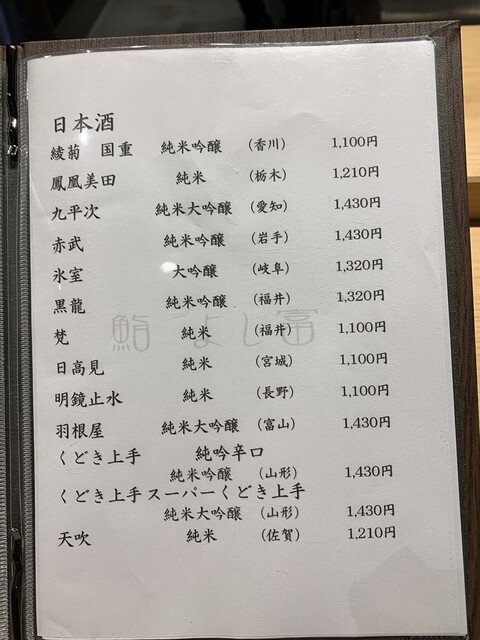 日本酒
綾菊 国重 純米吟醸 (香川) 1,100円
鳳凰美田 純米 (栃木) 1,210円
九平次 純米大吟醸 (愛知) 1,430円
赤武 純米吟醸 (岩手) 1,430円
氷室 大吟醸 (岐阜) 1,320円
黒龍 純米吟醸 (福井) 1,320円
鮨 よし冨
梵 純米 (福井) 1,100円
日高見 純米 (宮城) 1,100円
明鏡止水 純米 (長野) 1,100円
羽根屋 純米大吟醸 (富山) 1,430円
くどき上手 純吟辛口
純米吟醸 (山形) 1,430円
くどき上手 スーパーくどき上手
純米大吟醸 (山形) 1,430円
天吹 純米 (佐賀) 1,210円